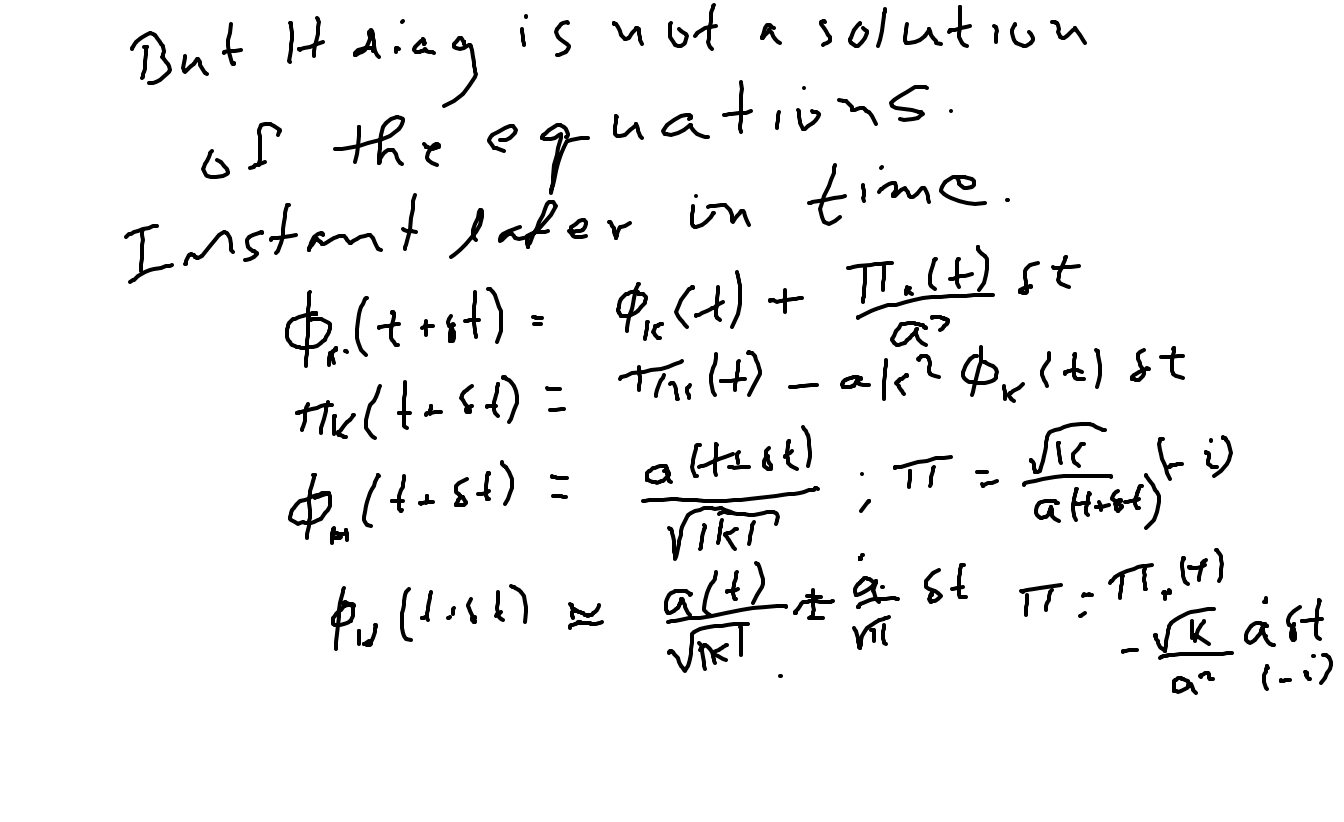 But H diag is not a solution
of the equations.
Instant later in time.
ϕ_k(t+δt) = ϕ_k(t) + Π_k(t)/a³ δt
π_k(t+δt) = π_k(t) − a k² ϕ_k(t) δt
ϕ_H(t+δt) = a(t+δt)/√|k| ; π = √k/a(t+δt) (−i)
ϕ_H(t+δt) ≈ a(t)/√|k| + ȧ/√| | δt π = π_k(t) − √k/a² ȧ δt (−i)